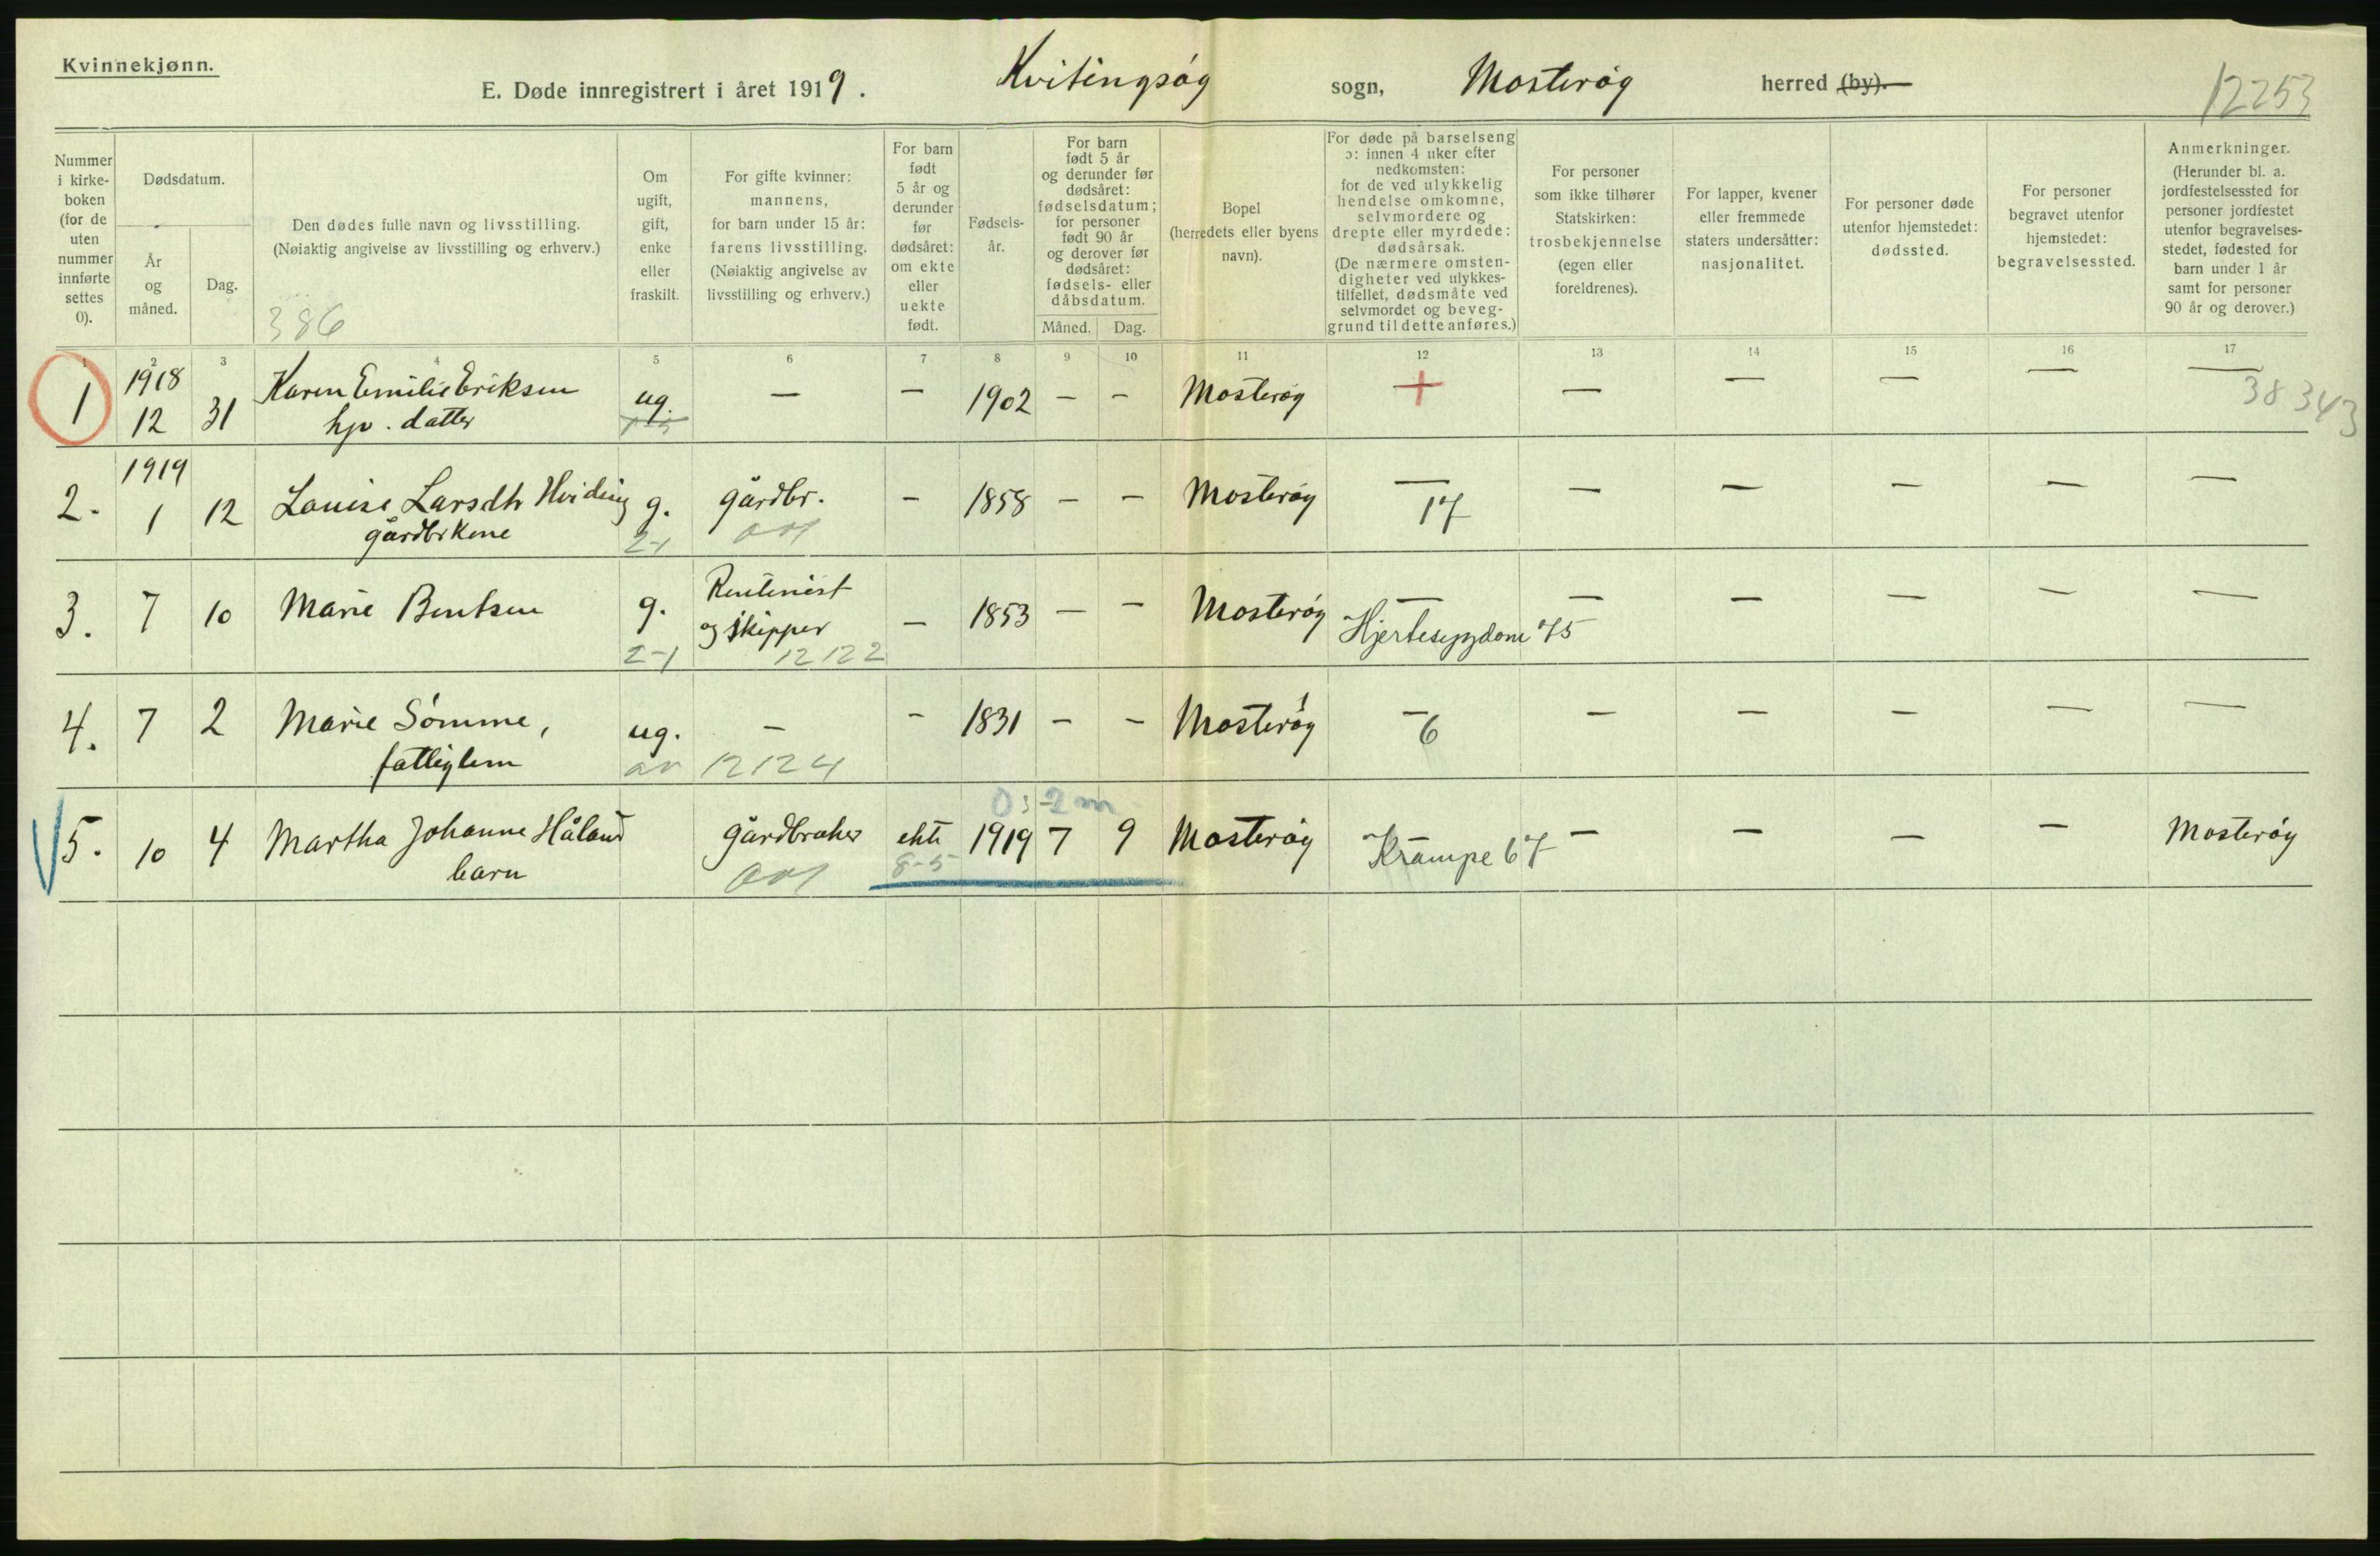 Kvinnekjønn.
E. Døde innregistrert i året 1919. Kvitingsøy sogn, Mosterøy herred (by).
12253
Nummer i kirke-boken (for de uten nummer innførte settes 0).
Dødsdatum.
År og måned.
Dag.
Den dødes fulle navn og livsstilling.
(Nøiaktig angivelse av livsstilling og erhverv.)
386
Om ugift, gift, enke eller fraskilt.
For gifte kvinner: mannens, for barn under 15 år: farens livsstilling. (Nøiaktig angivelse av livsstilling og erhverv.)
For barn født 5 år og derunder før dødsåret: om ekte eller uekte født.
Fødsels-år.
For barn født 5 år og derunder før dødsåret: fødselsdatum; for personer født 90 år og derover før dødsåret: fødsels- eller dåbsdatum.
Måned. Dag.
Bopel (herredets eller byens navn).
For døde på barselseng ɔ: innen 4 uker efter nedkomsten: for de ved ulykkelig hendelse omkomne, selvmordere og drepte eller myrdede: dødsårsak. (De nærmere omsten-digheter ved ulykkes-tilfellet, dødsmåte ved selvmordet og beveg-grund til dette anføres.)
For personer som ikke tilhører Statskirken: trosbekjennelse (egen eller foreldrenes).
For lapper, kvener eller fremmede staters undersåtter: nasjonalitet.
For personer døde utenfor hjemstedet: dødssted.
For personer begravet utenfor hjemstedet: begravelsessted.
Anmerkninger. (Herunder bl. a. jordfestelsessted for personer jordfestet utenfor begravelses-stedet, fødested for barn under 1 år samt for personer 90 år og derover.)
1 2 3 4 5 6 7 8 9 10 11 12 13 14 15 16 17
1 1918 12 31 Karen Emilie Eriksen ug. — — 1902 — — Mosterøy + — — — — —
hjv. datter
38343
2. 1919 1 12 Louise Larsdtr Hviding g. gårdbr. — 1858 — — Mosterøy — — — — — —
gårdbrkone 2-1 17
3. 7 10 Marie Bentsen g. Rentenist og skipper — 1853 — — Mosterøy — — — — — —
2-1 12122 Hjertesygdom 75
4. 7 2 Marie Sømme, ug. — — 1831 — — Mosterøy — — — — — —
fattiglem 12124 6
0:2m
5. 10 4 Martha Johanne Håland gårdbruker ekte 1919 7 9 Mosterøy Krampe 67 — — — — Mosterøy
barn 8-5